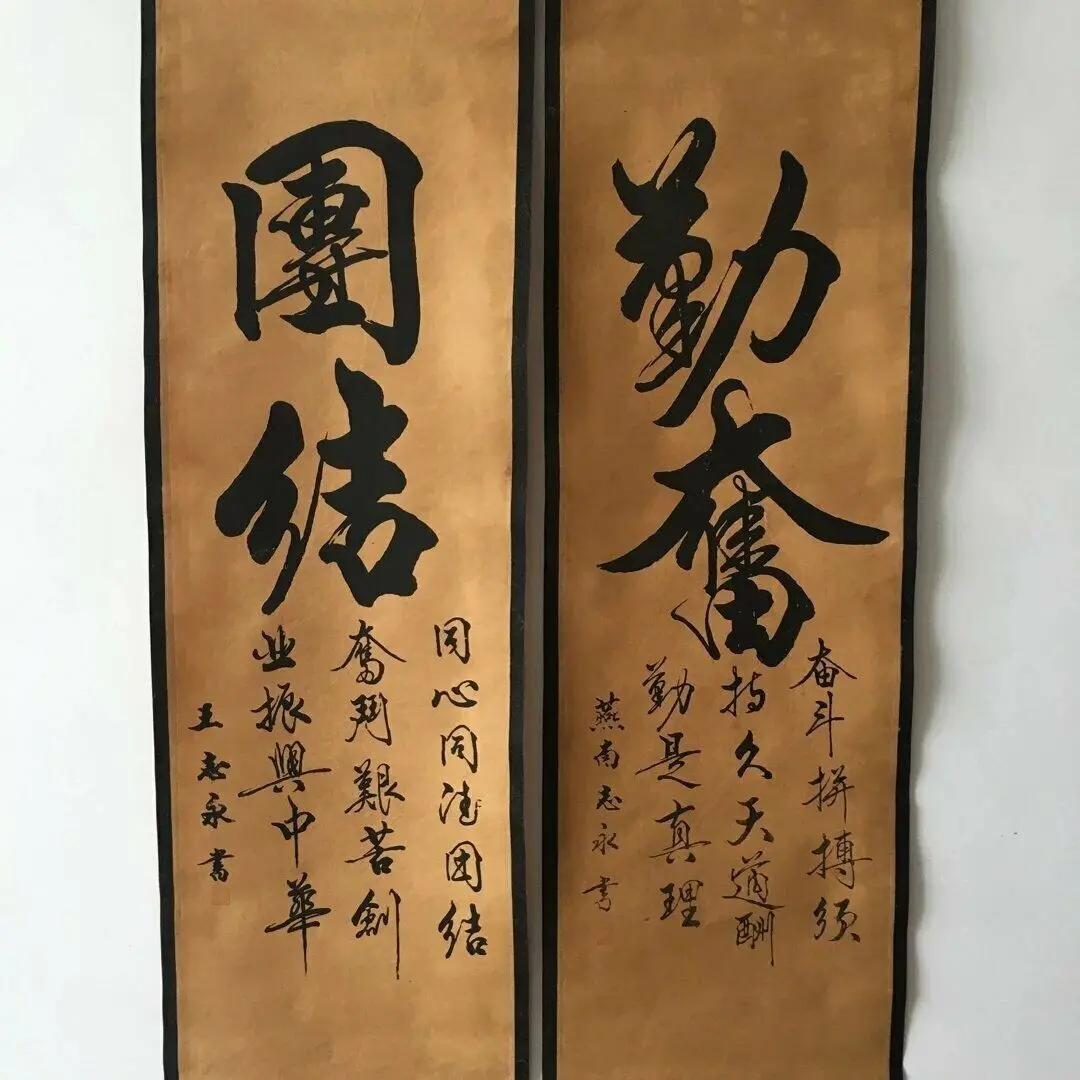 勤奮
奋斗拼搏须
持久天道酬
勤是真理
燕南志永书
團结
同心同德团结
奮鬥艱苦創
业振興中華
王志永書